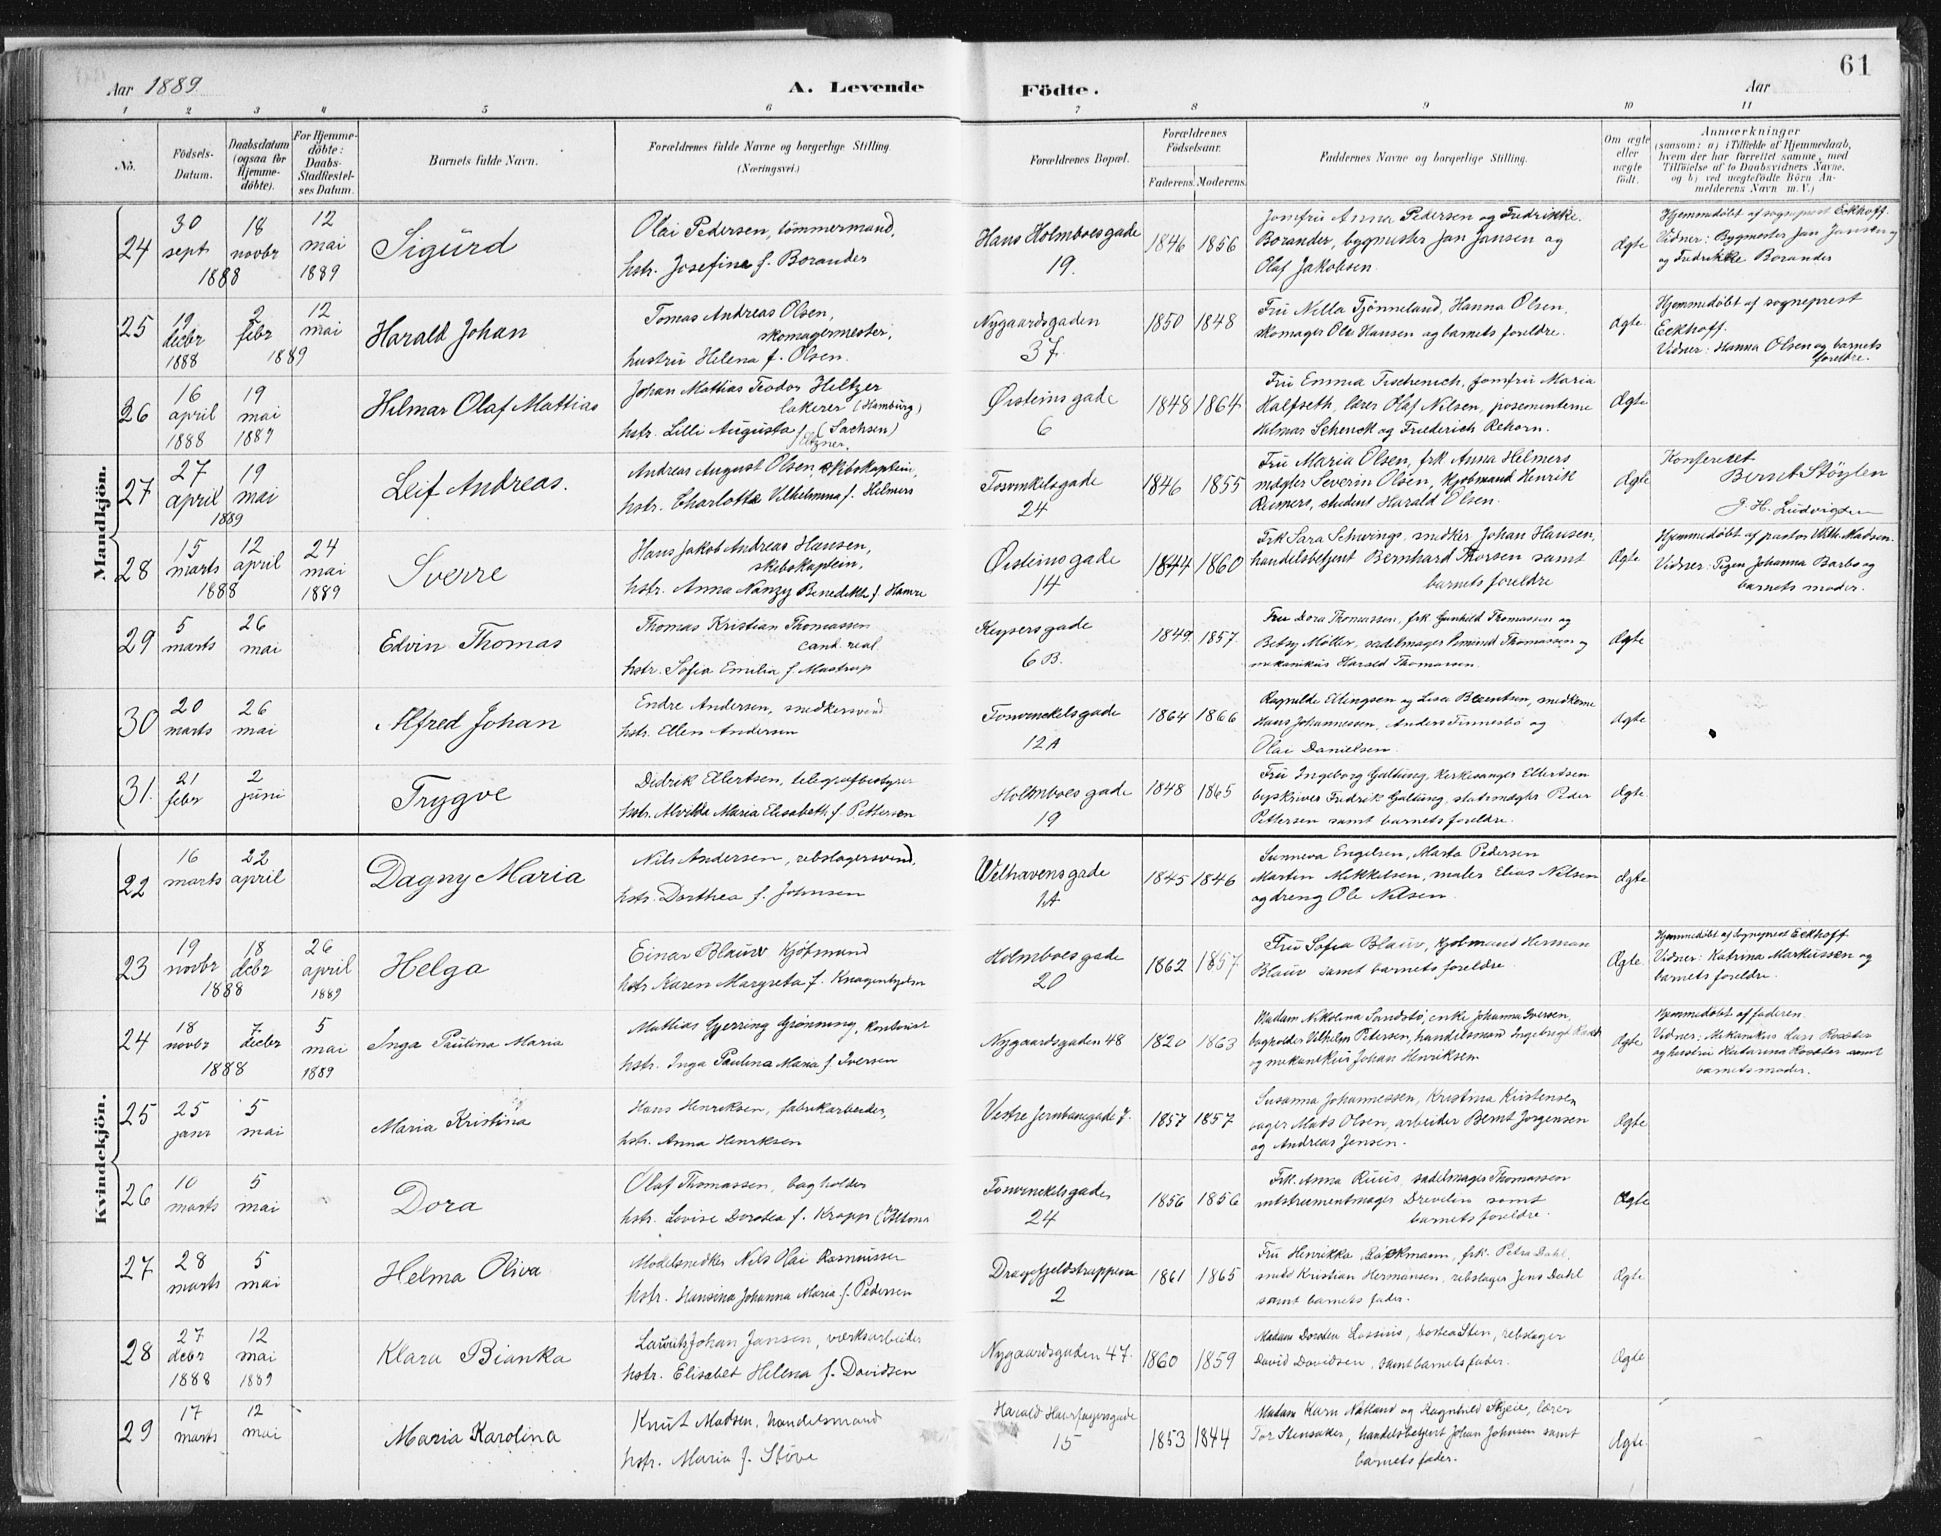 61
Aar 1889
A. Levende Födte.
Aar
1 2 3 4 5 6 7 8 9 10 11
No.
Födsels-Datum.
Daabsdatum (ogsaa for Hjemmedöbte).
For Hjemmedöbte: Daabs-Stadfæstelses Datum.
Barnets fulde Navn.
Forældrenes fulde Navne og borgerlige Stilling.
(Næringsvei.)
Forældrenes Bopæl.
Forældrenes Födselsaar.
Faderens. Moderens.
Faddernes Navne og borgerlige Stilling.
Om ægte eller uægte födt.
Anmærkninger
(saasom: a) i Tilfælde af Hjemmedaab, hvem der har forrettet samme, med Tilföielse af to Daabsvidners Navne. og b) ved uægtefödte Börn Anmelderens Navn m. V.)
Mandkjön.
24 30 sept 18 novbr 1888 12 mai 1889 Sigurd
Olai Pedersen, tömmermand,
hstr. Josefine f. Borander
Hans Holmboesgade 19. 1846 1856
Jomfru Anna Pedersen og Fredrikke
Borander, bygmester Jan Jansen og
Olaf Jakobsen.
Ægte
Hjemmedöbt af sogneprest Eckhoff.
Vidner: Bygmester Jan Jansen og
og Fredrikke Borander
25 19 decbr 1888 2 febr 1889 12 mai Harald Johan
Tomas Andreas Olsen,
skomagermester,
hustru Helena f. Olsen.
Nygaardsgaden 37. 1850 1848
Fru Nilla Tjönneland, Hanna Olsen,
skomager Ole Hansen og barnets foreldre.
Ægte
Hjemmedöbt af sogneprest
Eckhoff.
Vidner: Hanna Olsen og barnets
foreldre.
26 16 april 1888 19 mai 1889 Hilmar Olaf Mattias
Johan Mattias Teodor Heltzer
lakerer (Hamburg)
hstr. Lilli Augusta f. (Sachsen)
Øisteinsgade 6 1848 1864
Fru Emma Tischenich, jomfru Maria
Halfseth, lærer Olaf Nilsen, posementerne
Hilmar Schenck og Friederich Rehorn.
Ægte
27 27 april 19 mai 1889 Leif Andreas.
Andreas August Olsen skibskaptein,
hstr. Charlotta Vilhelmina f. Helmers
Fosvinkelsgade 24 1846 1855
Fru Maria Olsen, frk Anna Helmers
mægler Severin Olsen, kjöbmand Henrik
Reimers, student Harald Olsen.
Ægte
Konfereret
Bernt Støylen
J. H. Ludvigsen
28 15 marts 12 april 1888 24 mai 1889 Sverre
Hans Jakob Andreas Hansen,
skibskaptein,
hstr. Anna Nanzy Benedikte f. Hamre
Øisteinsgade 14 1844 1860
Frk Sara Schwings, snedker Johan Hansen,
handelsbetjent Bernhard Thorsen samt
barnets foreldre
Ægte
Hjemmedöbt af pastor Wilh. Madsen.
Vidner: Pigen Johanna Barbo og
barnets moder.
29 5 marts 26 mai Edvin Thomas
Thomas Kristian Thomassen
cand. real.
hstr. Sofia Emilia f. Mastrup
Keysersgade 6 B. 1849 1857
Fru Dora Thomassen, frk Gunhild Thomassen og
Betsy Möller, sadelmager Amund Thomassen og
mekanikus Harald Thomassen.
Ægte
30 20 marts 26 mai Alfred Johan
Endre Andersen, snedkersvend
hstr. Ellen Andersen
Fosvinckelsgade 12A 1864 1866
Ragnilde Ellingsen og Lisa Berentsen, snedkerne
Hans Johannessen, Anders Finnesbö og
Olai Danielsen.
Ægte
31. 21 febr 2 juni Trygve
Didrik Ellertsen, telegrafbestyrer
hstr. Alvilda Maria Elisabeth f. Pettersen
Holmboesgade 19 1848 1865
Fru Ingeborg Galtung, kirkesanger Ellertsen
byskriver Fredrik Galtung, statsmægler Peder
Pettersen samt barnets foreldre.
Ægte
Kvindekjön.
22 16 marts 22 april Dagny Maria
Nils Andersen, rebslagersvend,
hstr. Dorthea f. Johnsen
Welhavensgade 1A 1845 1846
Sunneva Engelsen, Marta Pedersen
Martin Mikkelsen, maler Elias Nilsen
og dreng Ole Nilsen.
Ægte
23 19 novbr 18 debr 1888 26 april 1889 Helga
Einar Blauw Kjöbmand
hstr Karen Margreta f. Knagenhjelm
Holmboesgade 20 1862 1857
Fru Sofia Blauw, kjöbmand Herman
Blauw samt barnets foreldre.
Ægte.
Hjemmedöbt af Sogneprest Eckhoff.
Vidner: Katrina Markussen og
barnets foreldre.
24 18 novbr 7 decbr 1888 5 mai 1889 Inga Paulina Maria
Mattias Gjerring Grönning, kontorist
hstr. Inga Paulina Maria f. Iversen
Nygaardsgaden 48 1820 1863
Madam Nikolina Sandsbö, enke Johanna Iversen,
bogholder Vilhelm Petersen, handelsmand Ingebrigt
og mekanikus Johan Henriksen
Ægte
Hjemmedöbt af faderen.
Vidner: Mekanikus Lars Roster
og hustru Katarina Roster samt
barnets moder.
25 25 janr 5 mai Maria Kristina
Hans Henriksen, fabrikarbeider,
hstr. Anna Henriksen
Vestre Jernbanegade 7. 1857 1857
Susanna Johannessen, Kristina Kristensen
bager Mads Olsen, arbeider Bernt Jörgensen
og Andreas Jensen.
Ægte
26 10 marts 5 mai Dora
Olaf Thomassen, bogholder
hstr. Lovise Dorotea f. Kropp (Altona)
Fosvinckelsgade 24 1856 1856
Frk. Anna Ruus, sadelmager Thomassen
intstrumentmager Drevelin samt
barnets foreldre.
Ægte
27 28 marts 5 mai Helma Oliva
Modelsnedker Nils Olai Rasmussen
hstr. Hansina Johanna Maria f. Pedersen
Dragefjeldstrappene 2 1861 1865
Fru Henrikka Böckmann, frk. Petra Dahl,
smed Kristian Hermansen, rebslager Jens Dahl
samt barnets fader.
Ægte
28 27 debr 1888 12 mai 1889 Klara Bianka
Lauritz Johan Jansen, værksarbeider
hstr. Elisabet Helena f. Davidsen
Nygaardsgaden 47. 1860 1859
Madam Dorotea Lossius, Dortea Sten, rebslager
David Davidsen, samt barnets fader.
Ægte
29 17 marts 12 mai Maria Karolina
Knut Madsen, handelsmand
hstr. Maria f. Støve
Harald Haarfagersgade 15 1853 1844
Madam Karn Natland og Ragnhild Skjeie, lærer
Tor Stensaker, handelsbetjent Johan Johnsen samt
barnets fader.
Ægte.